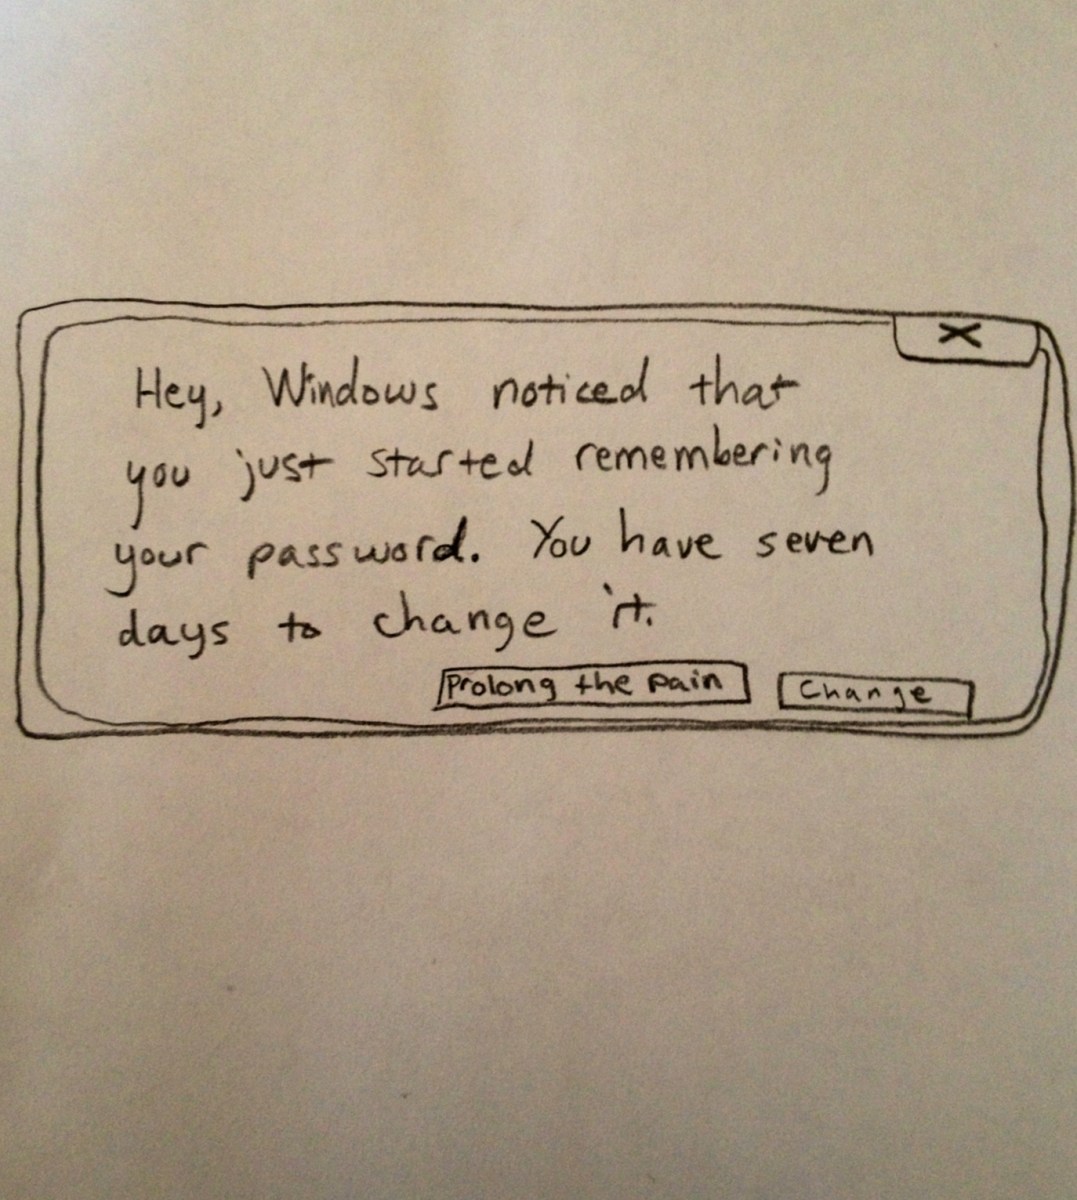 Hey, Windows noticed that
you just started remembering
your password. You have seven
days to change it.
Prolong the pain Change